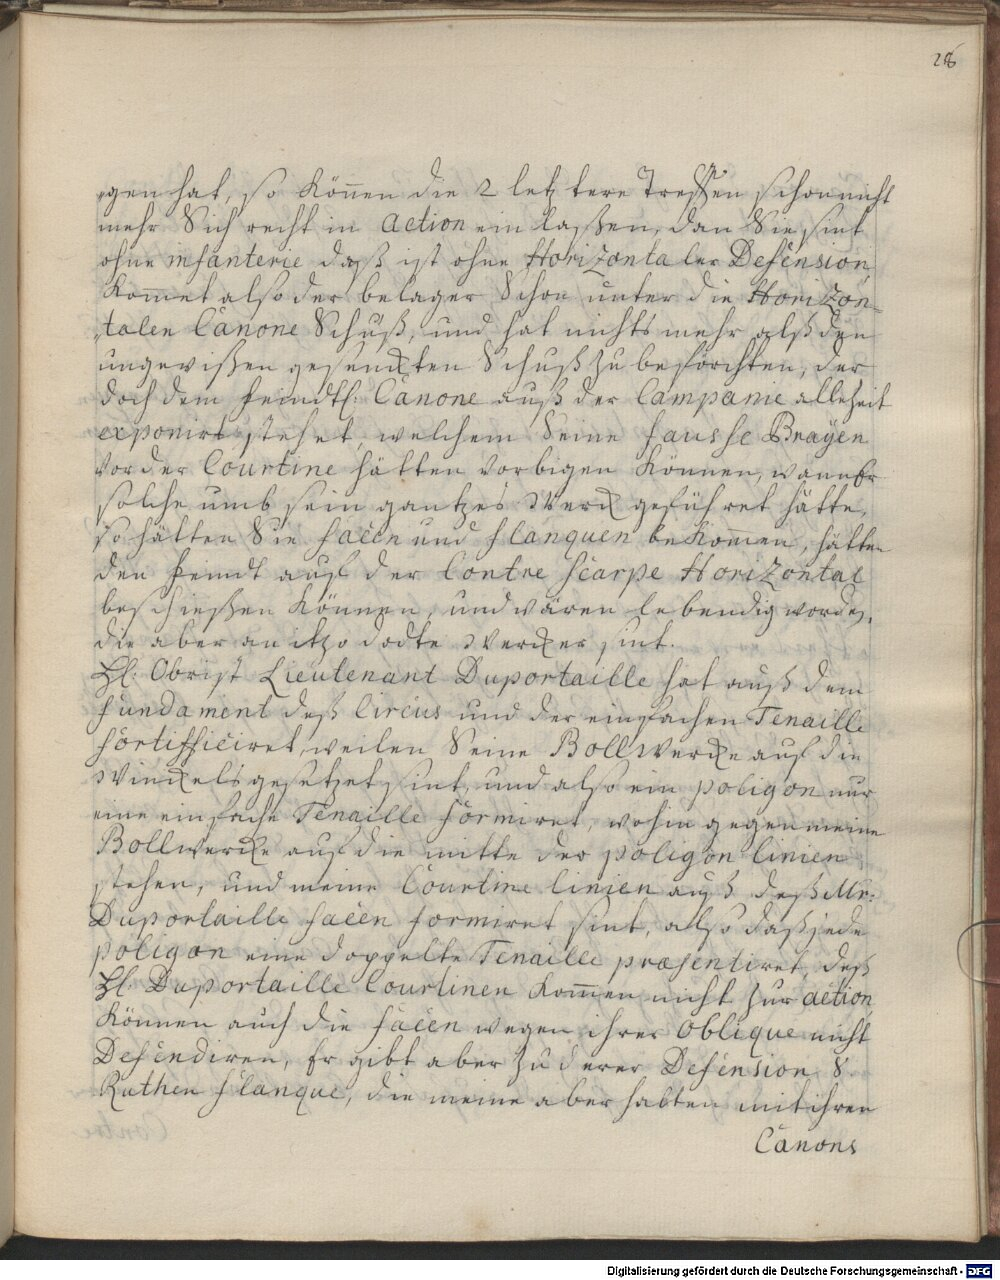 28
gen hat, so können die 2 letztere Treffen schon nicht
mehr Sich recht in Action einlaßen, dan Sie sint
ohne infanterie daß ist ohne Horizontaler Defension,
Kommet also der belager Schon unter die Horizon-
talen Canone Schuß, und hat nichts mehr alß den
ungewißen gesenckten Schuß zu beförchten, der
doch dem feindtl: Canone auß der Campanie allezeit
exponirt stehet, welchem Seine fausse Brayen
vor der Courtine hätten vorbigen können, wann Er
solche umb sein gantzes Werck geführet hätte,
so hätten Sie facen und flanquen bekommen, hätten
den feindt auf der Contre scarpe Horizontal
beschießen können, und wären lebendig worden,
die aber anitzo dodte Wercker sint.
Hl: Obrist Lieutenant Duportaille hat auß dem
fundament deß Circus und der einfachen Tenaille
fortifficiret, weilen Seine Bollwercke auf die
Winckels gesetzet sint, und also ein poligon nur
eine einfache Tenaille formiret, wohingegen meine
Bollwercke auf die mitte der poligon linien
stehen, und meine Courtine linien auß deß Mr:
Duportaille facen formiret sint, also daß jede
poligon eine doppelte Tenaille præsentiret, deß
Hl: Duportaille Courtinen kommen nicht zur action,
können auch die facen wegen ihrer Oblique nicht
Defendiren, Er gibt aber zu derer Defension 8.
Ruthen flanque, die meine aber halten mit ihren
Canons
Digitalisierung gefördert durch die Deutsche Forschungsgemeinschaft - DFG